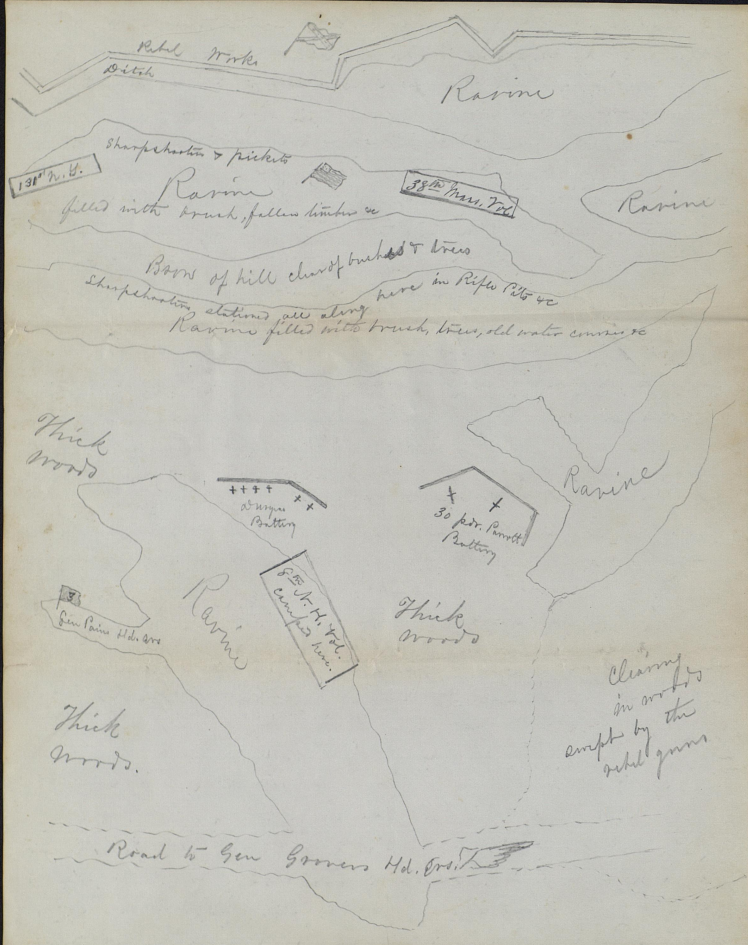 Rebel Works
Ditch
Ravine
Sharpshooters & pickets
131st N.Y.
Ravine
38th Mass. Vol
Ravine
filled with brush, fallen timber &c
Brow of hill clear of bushes & trees
Sharpshooters stationed all along here in Rifle Pits &c
Ravine filled with brush, trees, old water courses &c
Thick
Woods
Ravine
Duryea
Battery
30 pdr. Parrott
Battery
8th N.H. Vol.
camped here.
3
Gen Paine Hd. Qrs
Ravine
Thick
Woods
Clearing
in woods
swept by the
rebel guns
Thick
Woods.
Road to Gen Grovers Hd. Qrs.